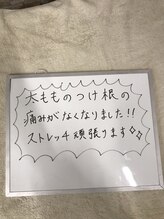 太もものつけ根の
痛みがなくなりました!!
ストレッチ頑張ります✧✧